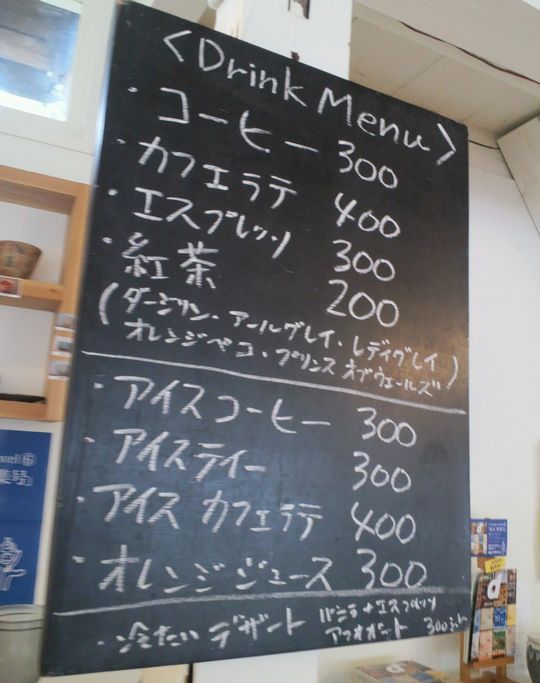 <Drink Menu>
・コーヒー 300
・カフェラテ 400
・エスプレッソ 300
・紅茶 200
(ダージリン・アールグレイ・レディグレイ
オレンジペコ・プリンスオブウェールズ)
・アイスコーヒー 300
・アイスティー 300
・アイスカフェラテ 400
・オレンジジュース 300
・冷たいデザート バニラ+エスプレッソ
アフォガート 300